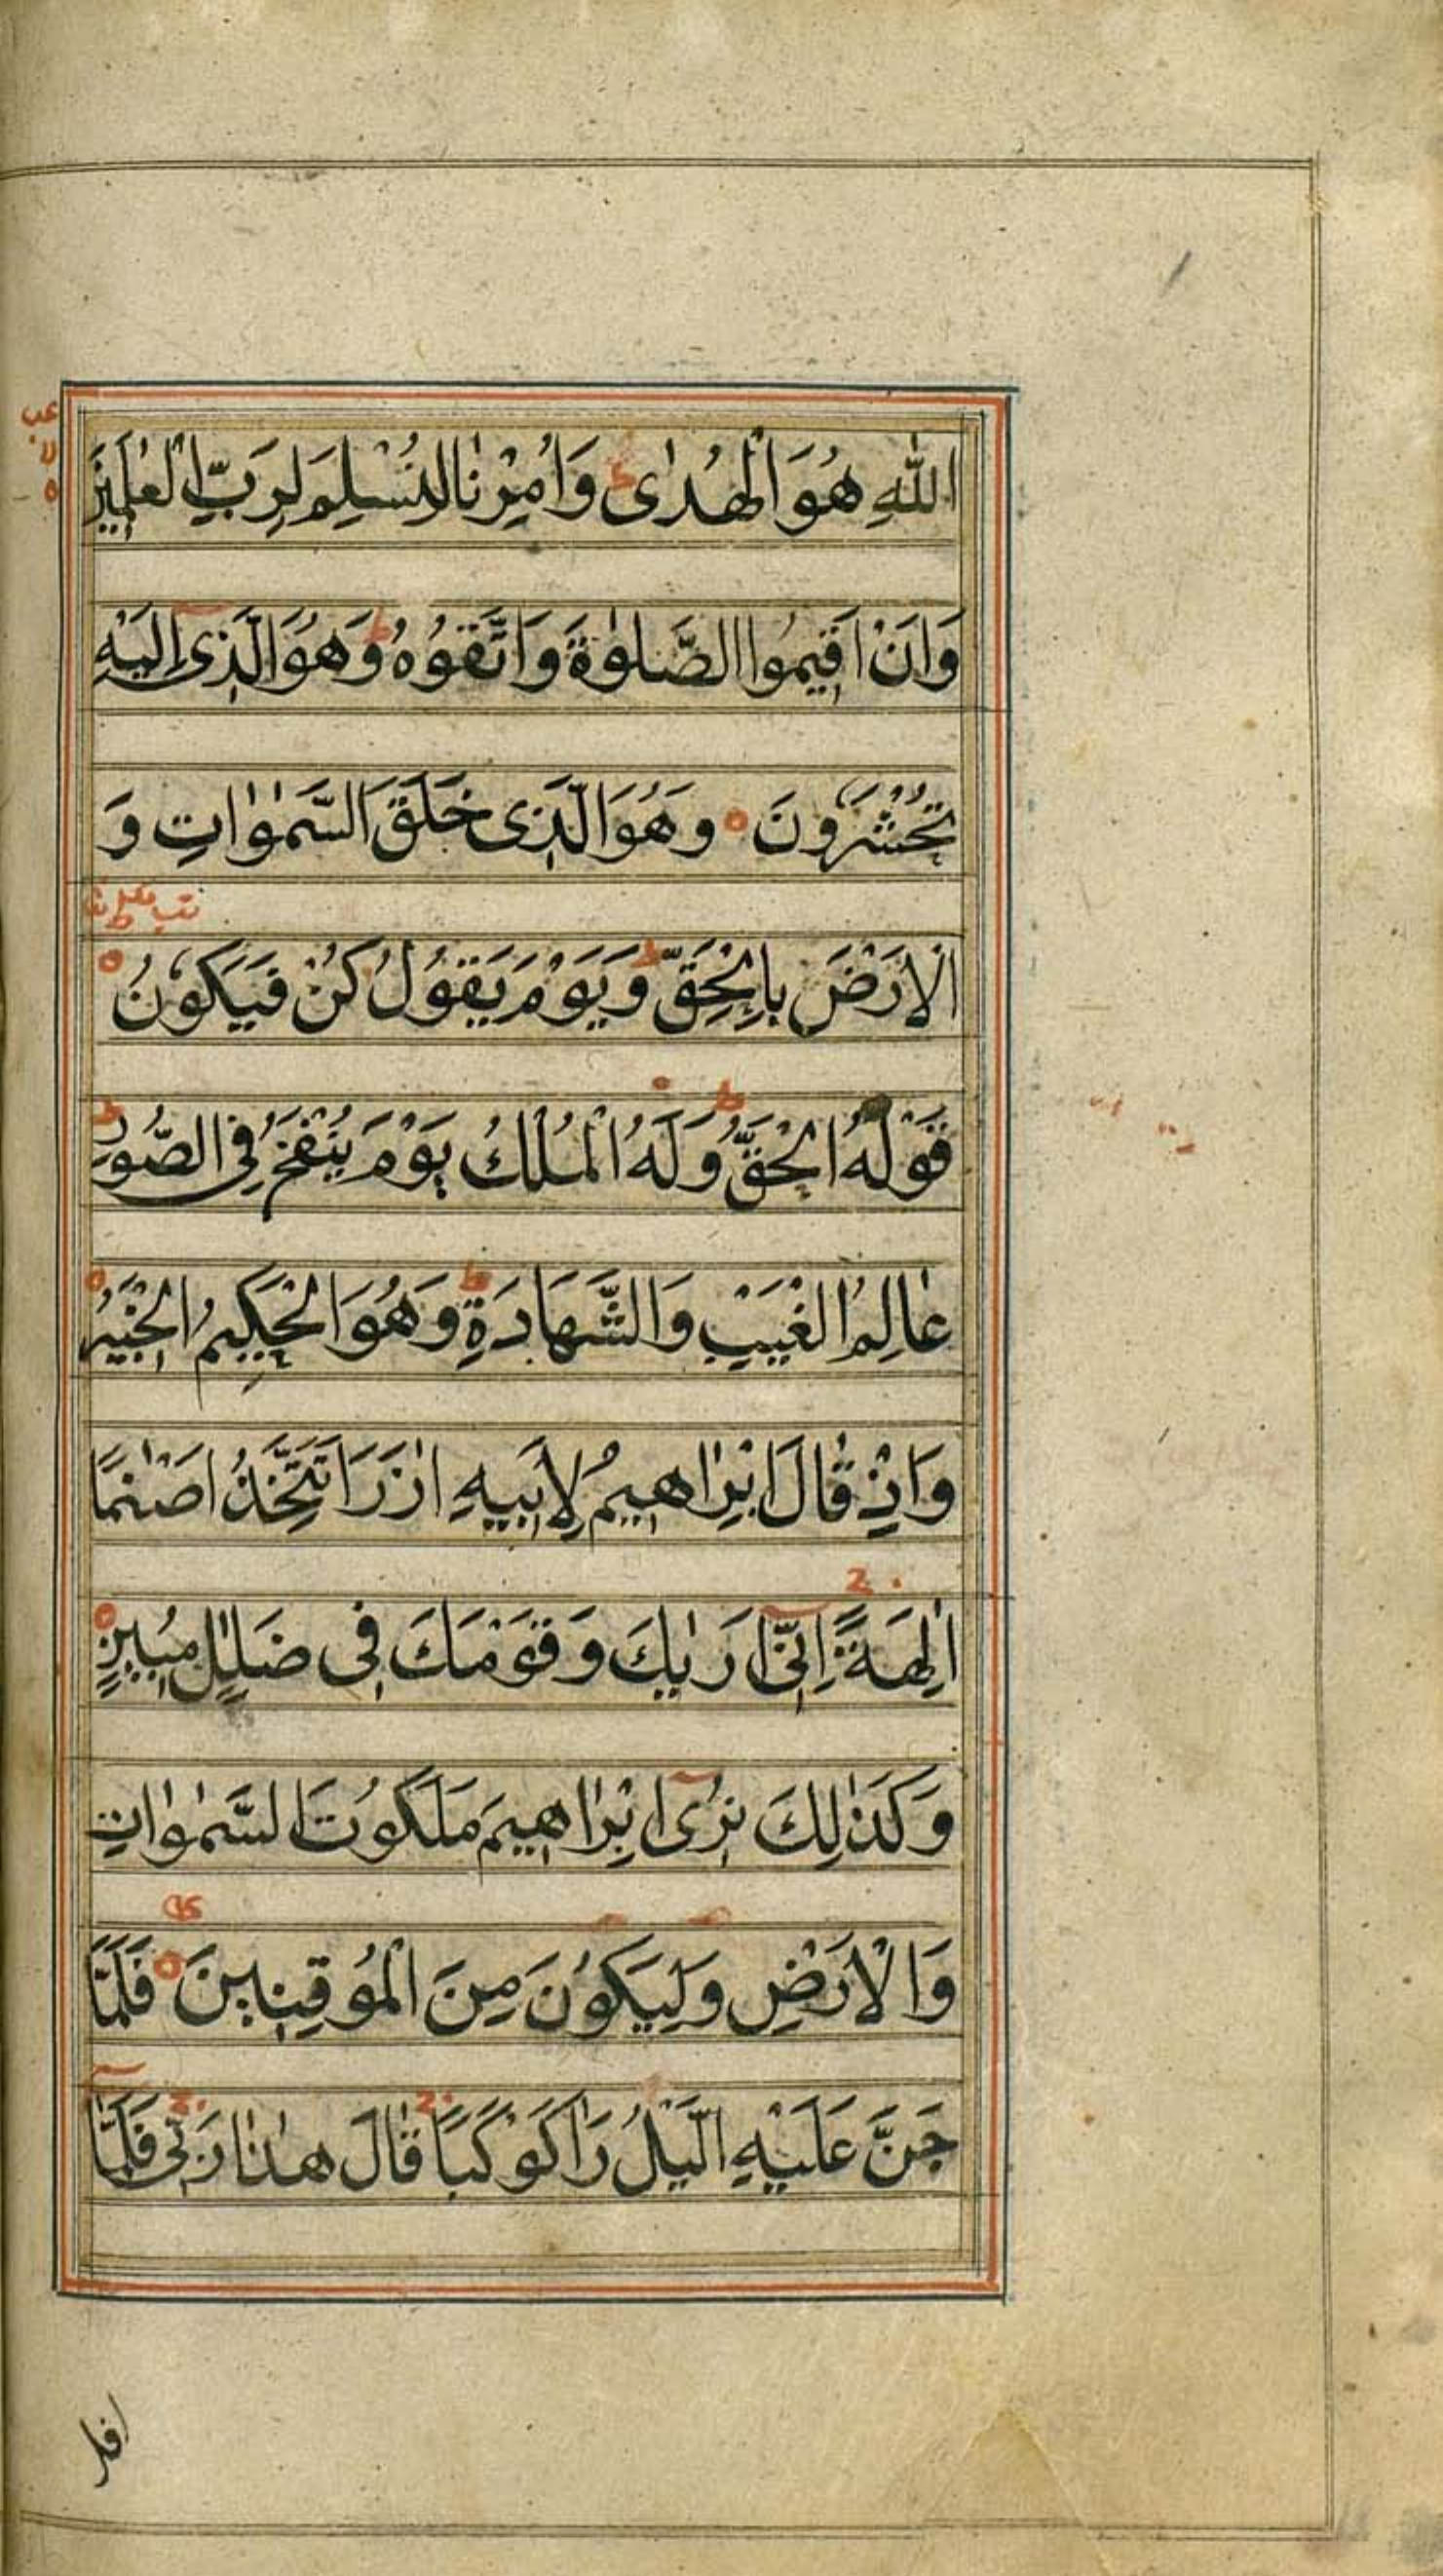 اللّٰهِ هُوَ الْهُدٰى وَاُمِرْنَا لِنُسْلِمَ لِرَبِّ الْعٰلَمِيْنَ
وَاَنْ اَقِيْمُوا الصَّلٰوةَ وَاتَّقُوْهُ ط وَهُوَ الَّذِىٓ اِلَيْهِ
تُحْشَرُوْنَ ۝ وَهُوَ الَّذِى خَلَقَ السَّمٰوَاتِ وَ
الْاَرْضَ بِالْحَقِّ ط وَيَوْمَ يَقُوْلُ كُنْ فَيَكُوْنُ ۝
قَوْلُهُ الْحَقُّ ط وَلَهُ الْمُلْكُ يَوْمَ يُنْفَخُ فِى الصُّوْرِ ط
عَالِمُ الْغَيْبِ وَالشَّهَادَةِ ط وَهُوَ الْحَكِيْمُ الْخَبِيْرُ ۝
وَاِذْ قَالَ اِبْرَاهِيْمُ لِاَبِيْهِ اٰزَرَ اَتَتَّخِذُ اَصْنَامًا
اٰلِهَةً اِنِّىٓ اَرٰيكَ وَقَوْمَكَ فِى ضَلٰلٍ مُبِيْنٍ ۝
وَكَذٰلِكَ نُرِىٓ اِبْرَاهِيْمَ مَلَكُوْتَ السَّمٰوَاتِ
وَالْاَرْضِ وَلِيَكُوْنَ مِنَ الْمُوْقِنِيْنَ ۝ فَلَمَّا
جَنَّ عَلَيْهِ الَّيْلُ رَاٰ كَوْكَبًا قَالَ هٰذَا رَبِّى فَلَمَّآ
افل